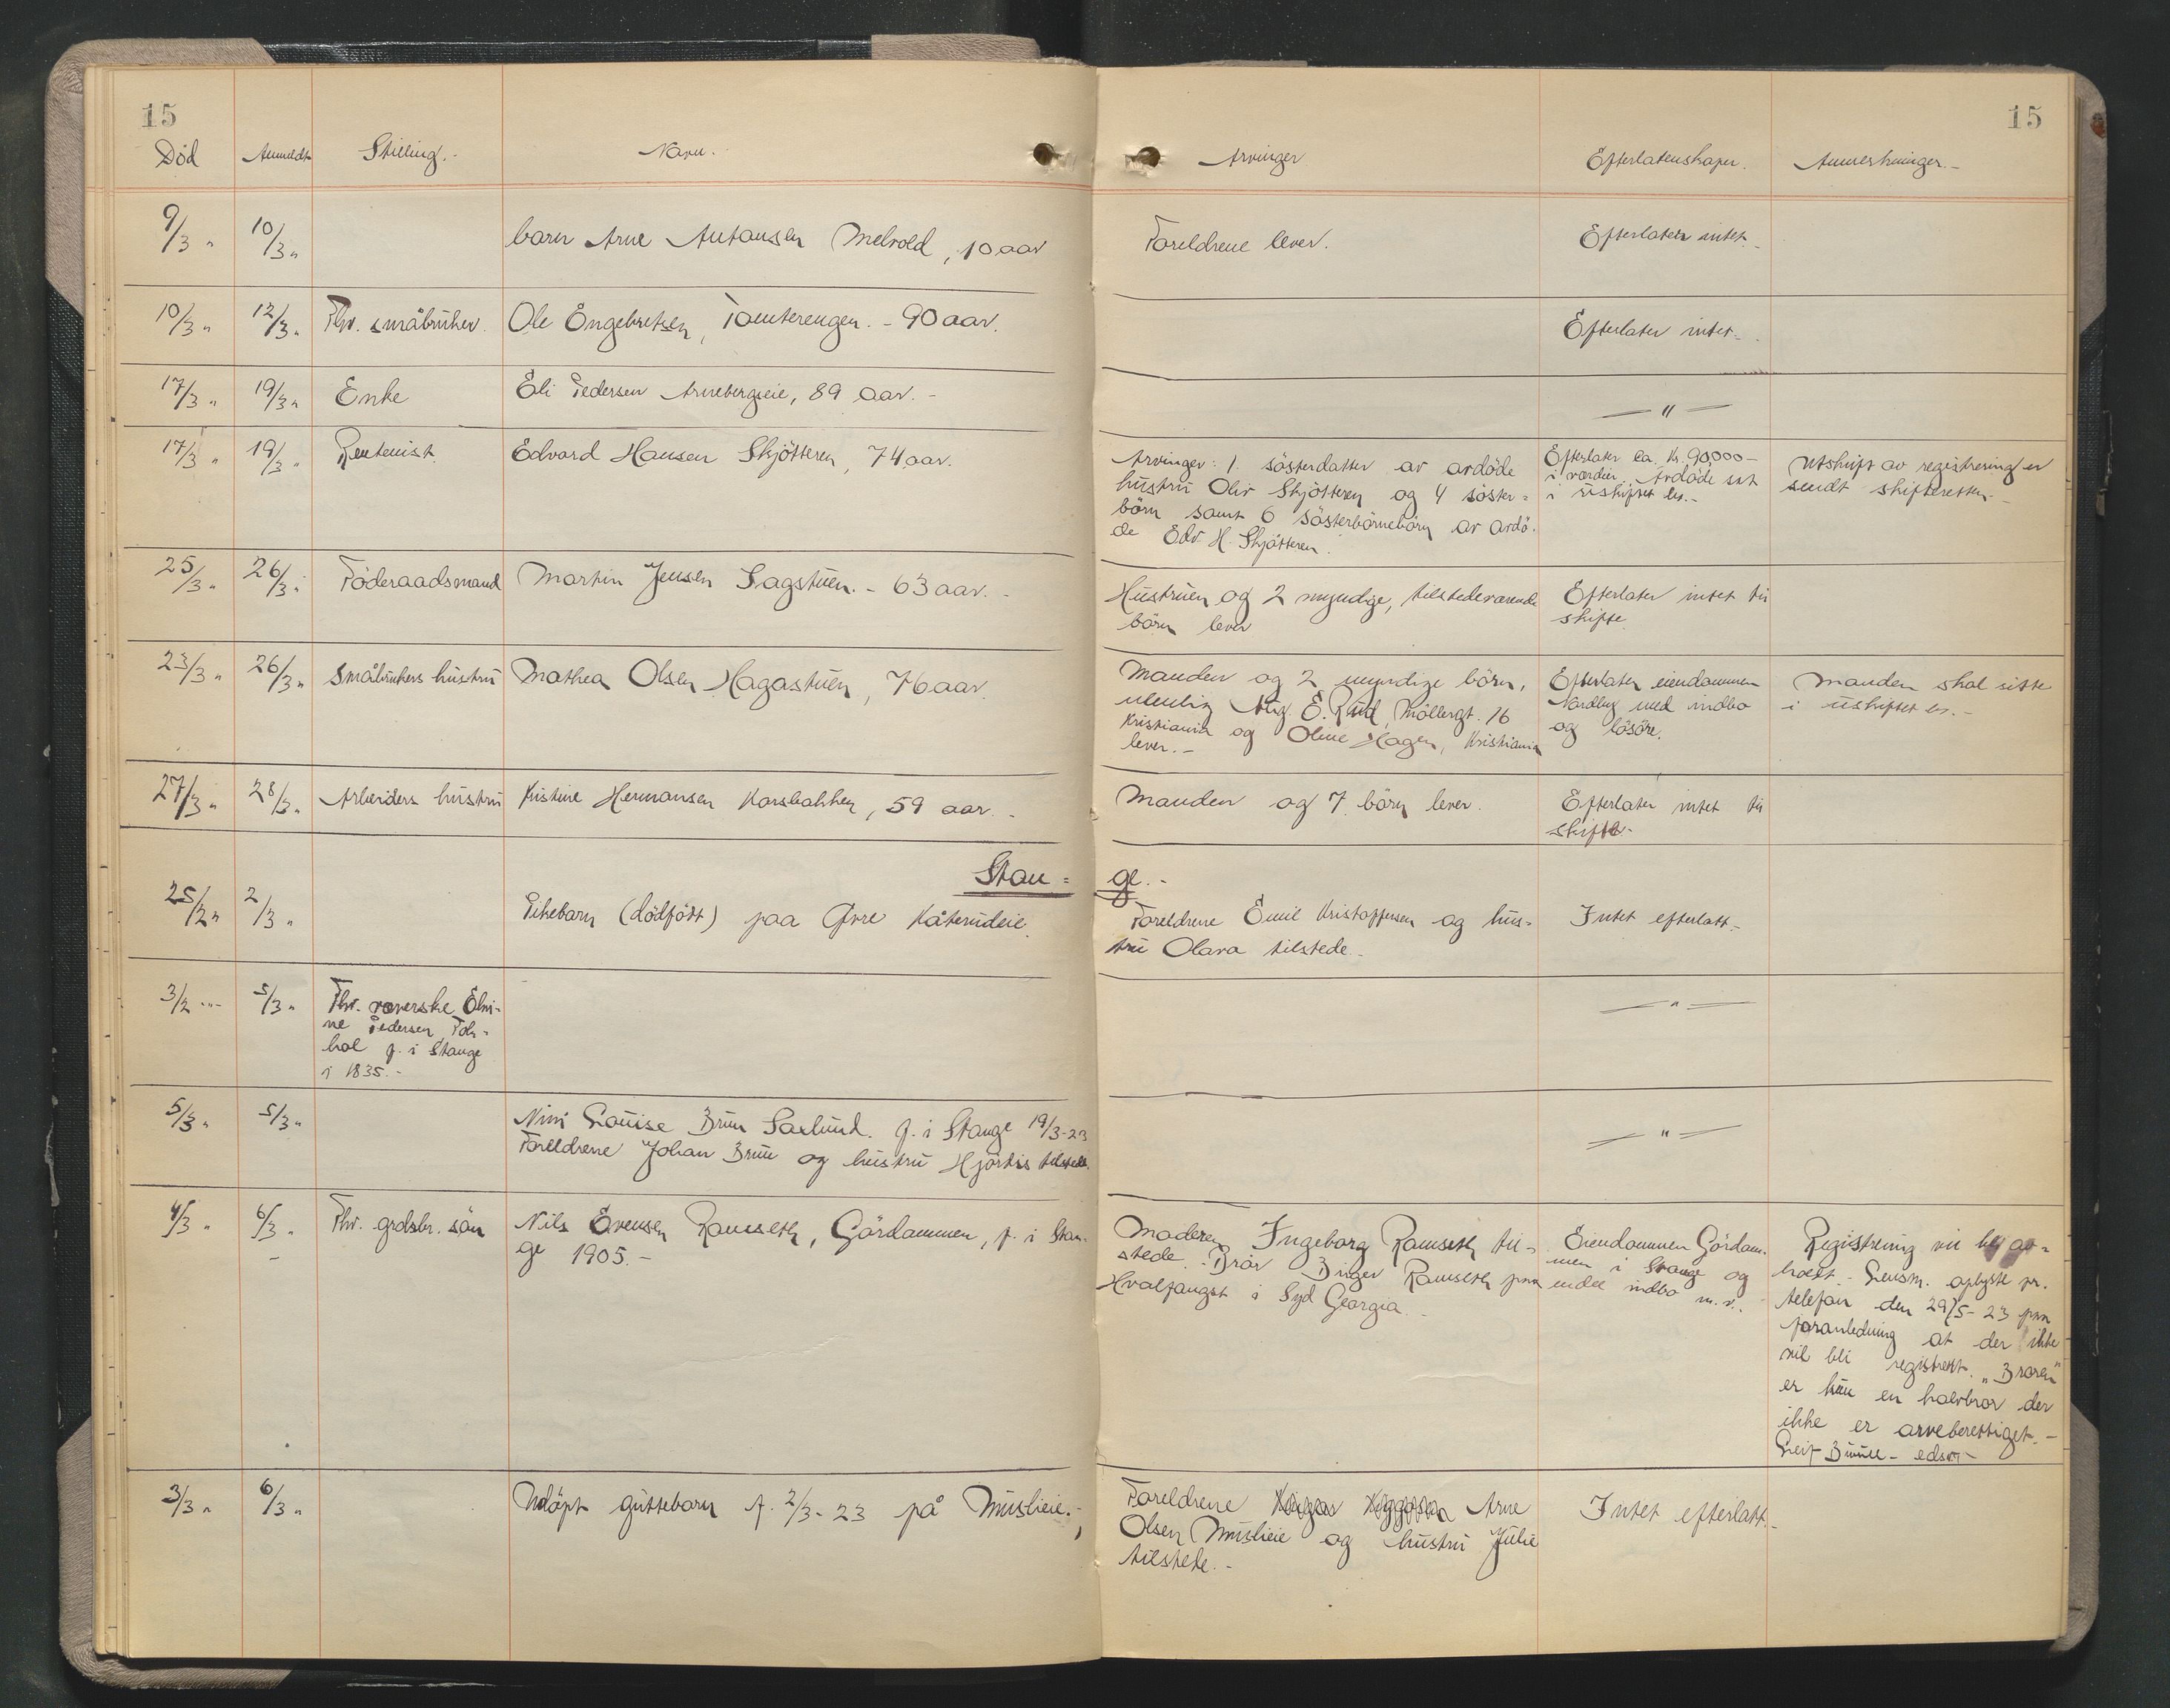 15
15
Död Anmeldt Stilling.- Navn.- Arvinger Efterlatenskaper. Anmerkninger.-
9/3 " 10/3 " barn Arne Antonsen Melvold, 10 aar Foreldrene lever. Efterlater intet.-
10/3 " 12/3 " Fhv. småbruker. Ole Engebretsen, Tomterengen. - 90 aar. Efterlater intet.-
17/3 " 19/3 " Enke Eli Pedersen Arnebergseie, 89 aar.- — " —
17/3 " 19/3 " Rentenist Edvard Hansen Skjötteren, 74 aar.
Arvinger: 1 sösterdatter av avdöde
hustru Oliv Skjötteren og 4 söster=
börn samt 6 sösterbörnebörn av avdö-
de Edv. H. Skjötteren.
Efterlater ca. kr. 90000-
i værdier. Avdöde sat
i uskiftet bo.-
Utskrift av registrering er
sendt skifteretten.-
25/3 " 26/3 " Föderaadsmand Martin Jensen Sagstuen. - 63 aar.-
Hustruen og 2 myndige, tilstedeværende
börn lever
Efterlater intet til
skifte.
23/3 " 26/3 " Småbrukers hustru Mathea Olsen Hagastuen, 76 aar.
Manden og 2 myndige börn,
nemlig Aug. E. Rud, Möllergt. 16
Kristiania og Oline Hagen, Kristiania
lever.-
Efterlater eiendommen
Nordby med indbo
og lösöre.
Manden skal sitte
i uskiftet bo.-
27/3 " 28/3 " Arbeiders hustru Kristine Hermansen Korsbakken, 59 aar.-
Manden og 7 börn lever.
Efterlater intet til
skifte.-
Stan= ge.-
25/2 " 2/3 " Pikebarn (dödfödt) paa Övre Kåterudeie.
Foreldrene Emil Kristoffersen og hus-
tru Olava tilstede.-
Intet efterlatt.-
3/2 ... 5/3 "
Fhv. væverske Elvi-
ne Pedersen
f. i Stange
i 1835.-
— " —
5/3 " 5/3 "
Nini Louise Brun Saxlund. f. i Stange 19/3-23
Foreldrene Johan Brun og hustru Hjördis tilstede.
— " —
4/3 " 6/3 " Fhv. grdsbr. sön
Nils Evensen Ramseth, Gördammen, f. i Stan-
ge 1905.-
Moderen Ingeborg Ramseth til-
stede. - Bror Birger Ramseth paa
Hvalfangst i Syd Georgia.-
Eiendommen Gördam-
men i Stange og
endel indbo m.v.
Registrering vil bli av-
holdt.- Lensm. oplyste pr.
telefon den 29/5-23 paa
foranledning at der ikke
vil bli registrert. "Broren"
er kun en halvbror der
ikke er arveberettiget.-
Leif
3/3 " 6/3 " Udöpt guttebarn f. 2/3-23 på Muslieie.-
Foreldrene Arne
Olsen Muslieie og hustru Julie
tilstede.-
Intet efterlatt.-